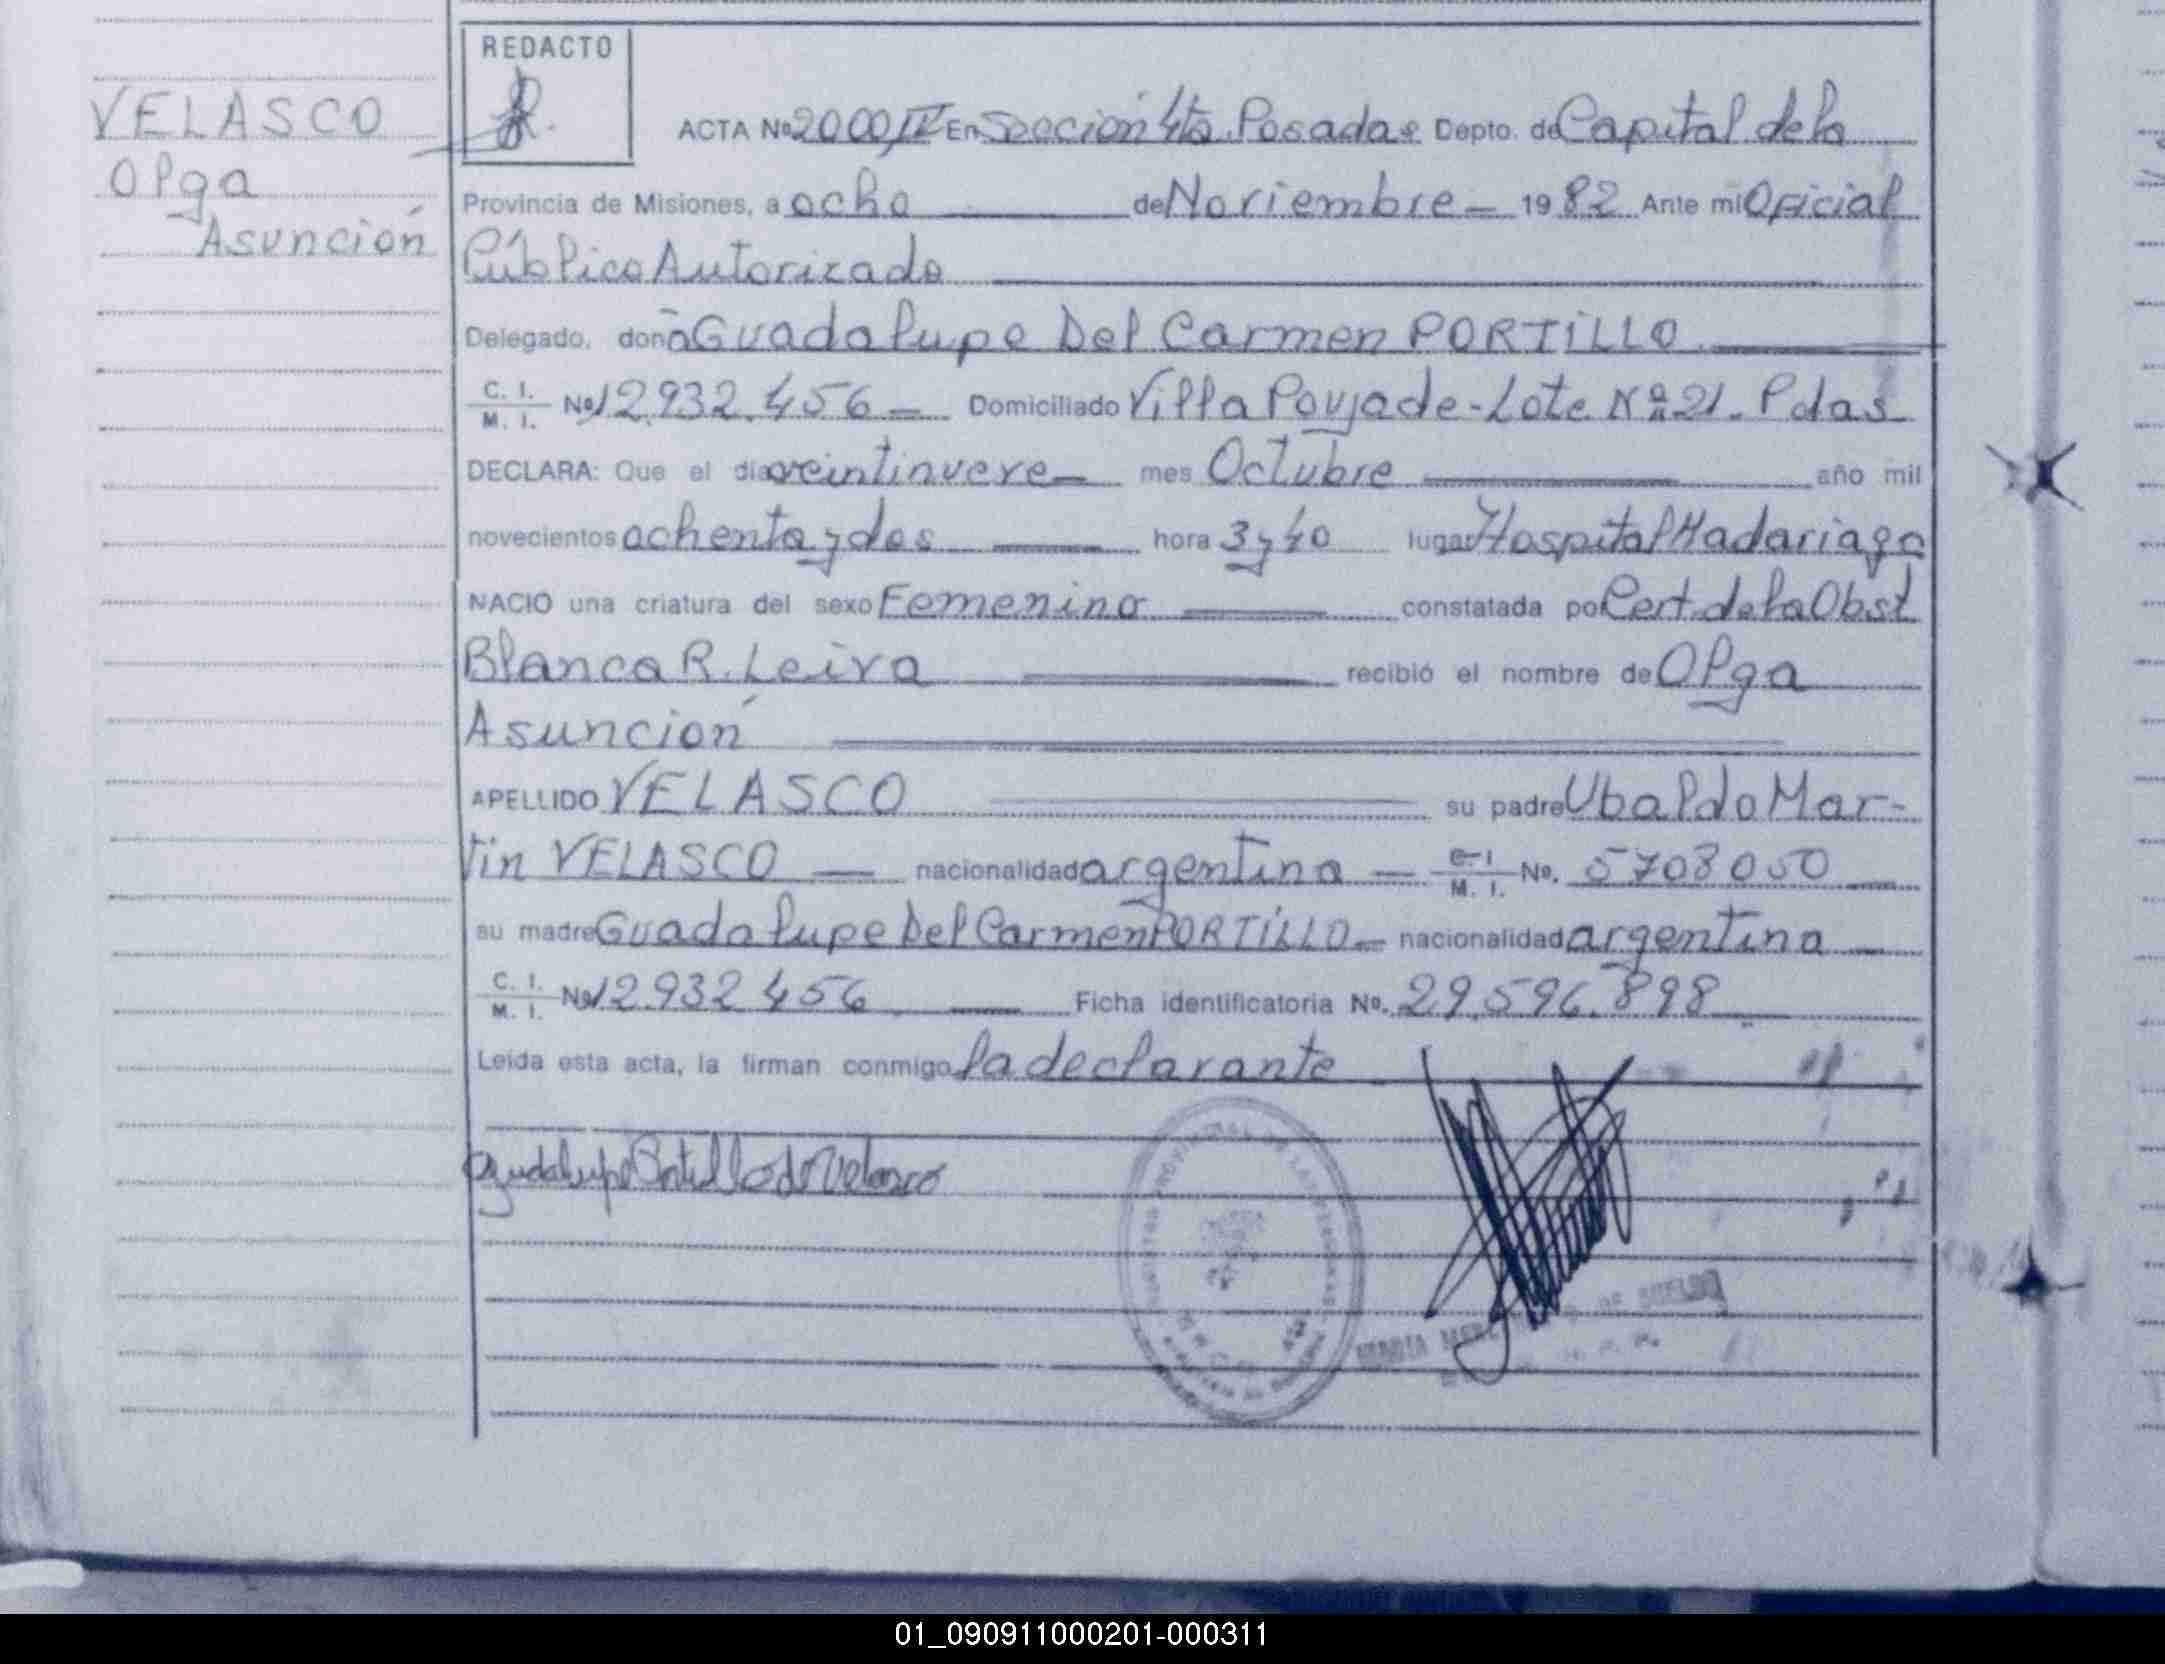 REDACTO
VELASCO
Olga
Asunción
ACTA Nº 2000, IV En Sección 4ta Posadas Depto. de Capital de la
Provincia de Misiones, a ocho de Noviembre 1982 Ante mi Oficial
Público Autorizado
Delegado, doña Guadalupe Del Carmen PORTILLO
C. I. M. I. Nº 12.932.456 Domiciliado Villa Poujade - Lote Nº 21. Pdas
DECLARA: Que el día veintinueve mes Octubre año mil
novecientos ochenta y dos hora 3 y 40 lugar Hospital Madariaga
NACIO una criatura del sexo Femenino constatada por Cert. de la Obst
Blanca R. Leiva recibió el nombre de Olga
Asunción
APELLIDO VELASCO su padre Ubaldo Mar-
tin VELASCO nacionalidad argentina C. I. M. I. Nº. 5708050
su madre Guadalupe Del Carmen PORTILLO nacionalidad argentina
C. I. M. I. Nº 12.932 456 Ficha identificatoria Nº. 29.596.898
Leída esta acta, la firman conmigo la declarante
Guadalupe Portillo de Velasco
REGISTRO PROVINCIAL DE LAS PERSONAS
MARIA DE
01_090911000201-000311